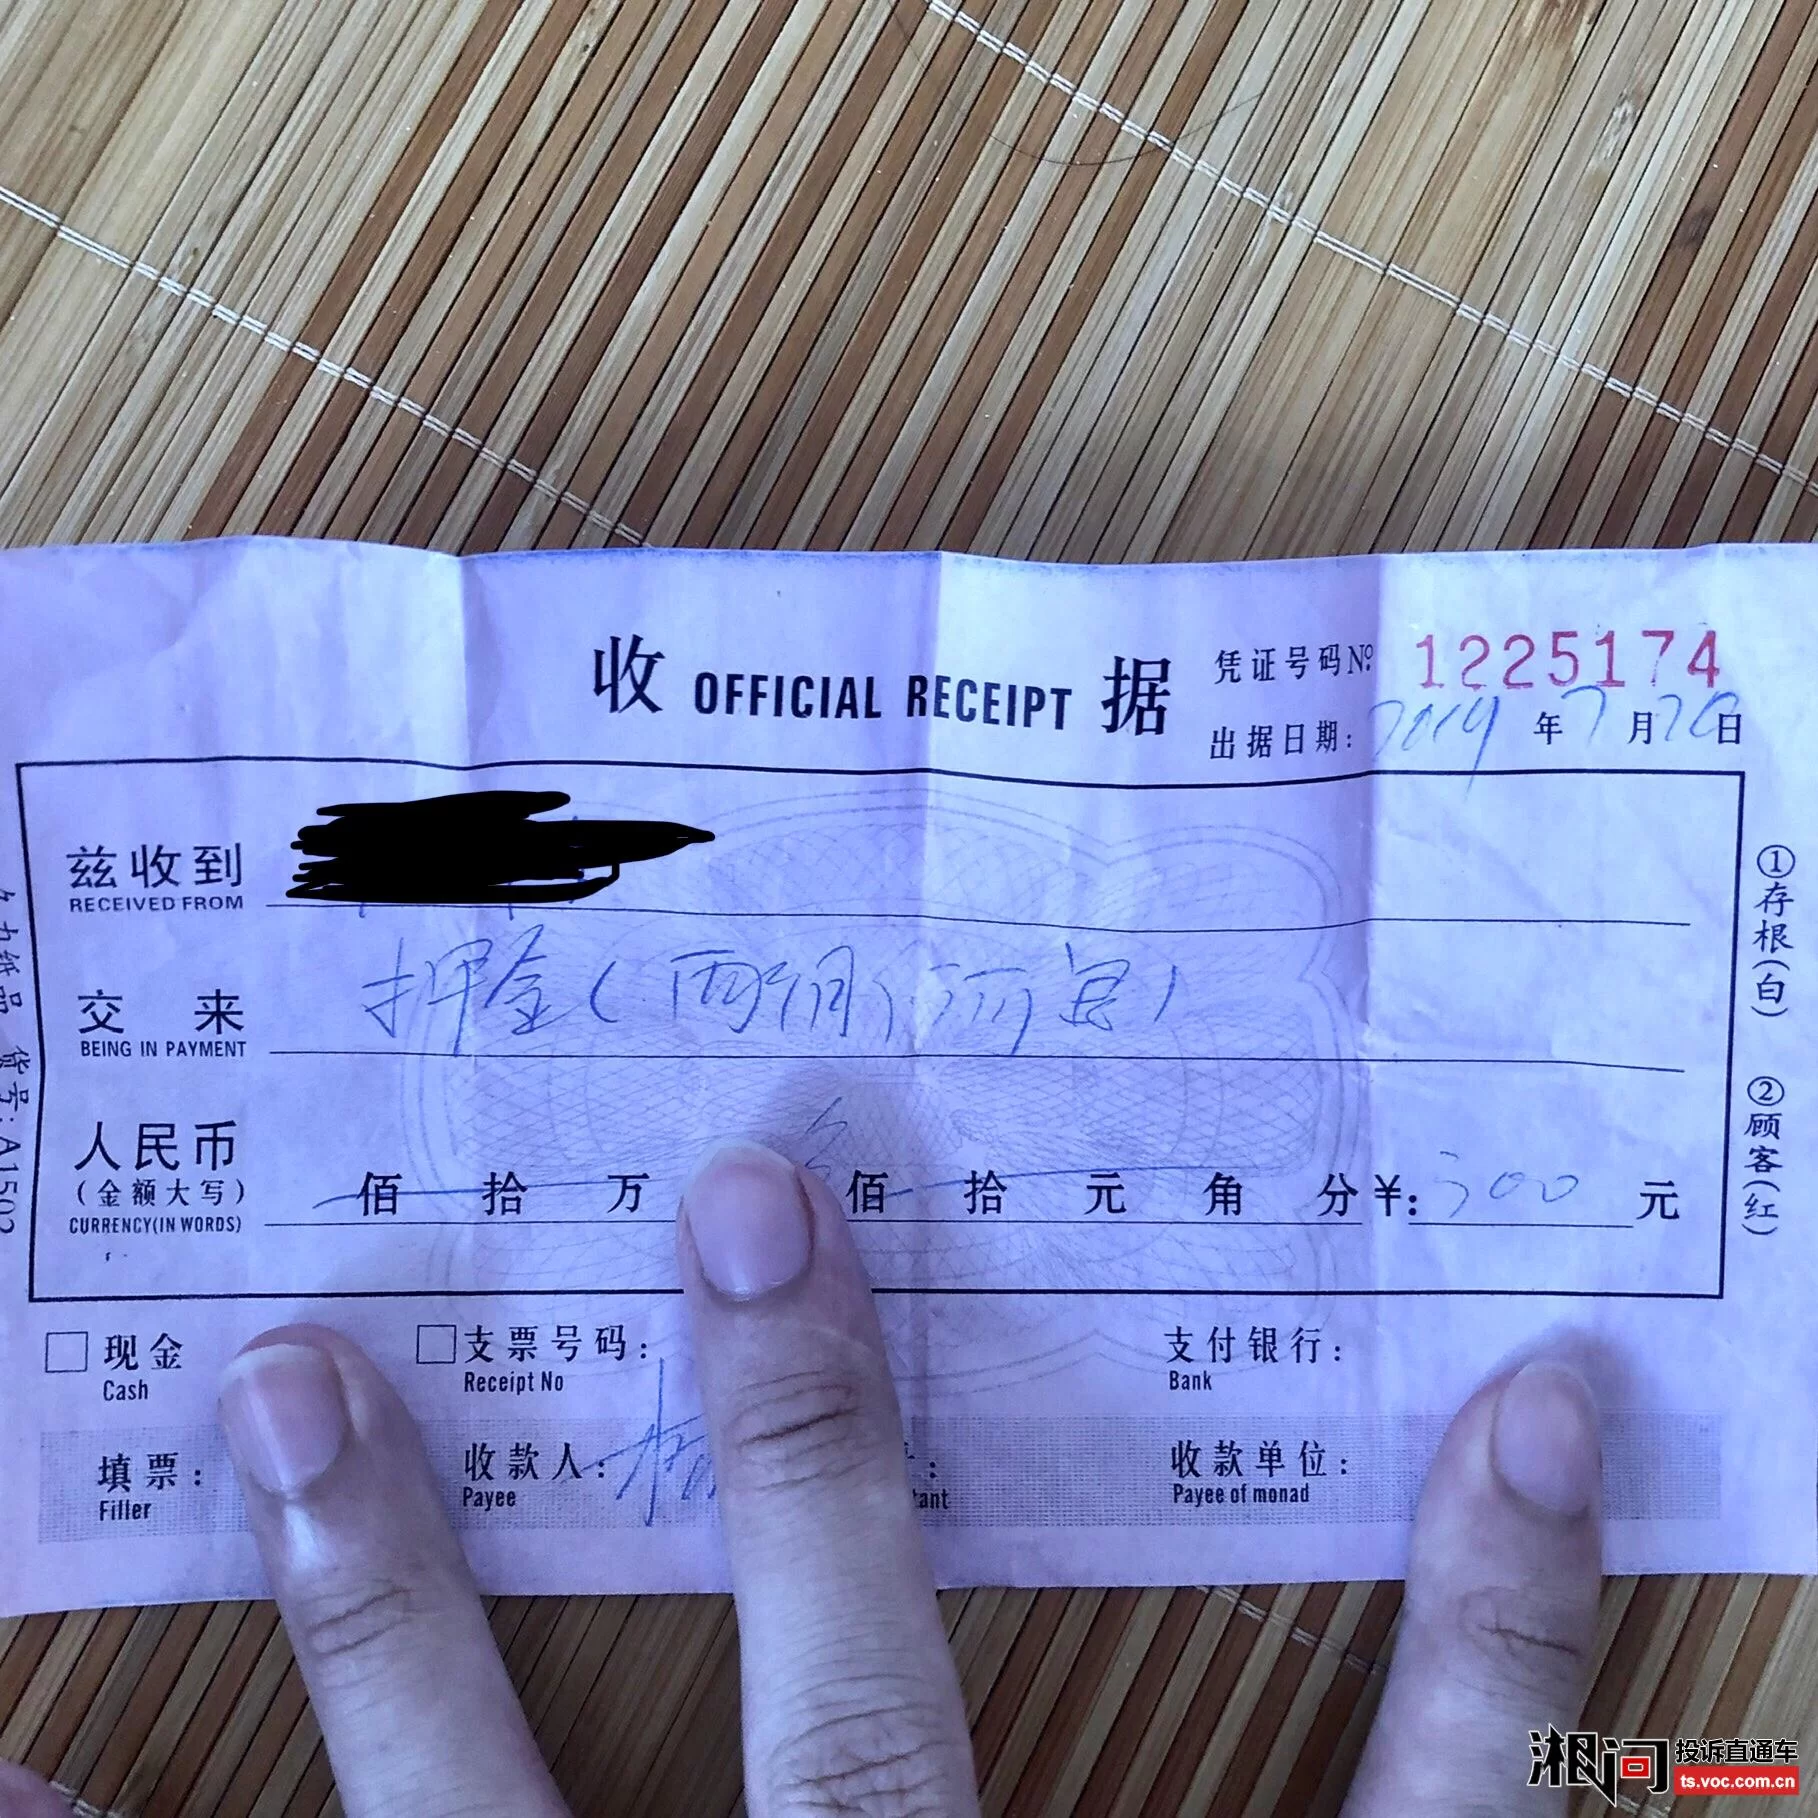 收 OFFICIAL RECEIPT 据
凭证号码№ 1225174
出据日期: 2019年7月20日
兹收到
RECEIVED FROM
交来 押金(两个月
BEING IN PAYMENT
人民币
(金额大写)
CURRENCY(IN WORDS)
佰 拾 万 佰 拾 元 角 分 ¥: 300 元
①存根(白)
②顾客(红)
纸品 货号:A1502
现金
Cash
支票号码:
Receipt No
支付银行:
Bank
填票:
Filler
收款人:
Payee
收款单位:
Payee of monad
湘问
投诉直通车
ts.voc.com.cn